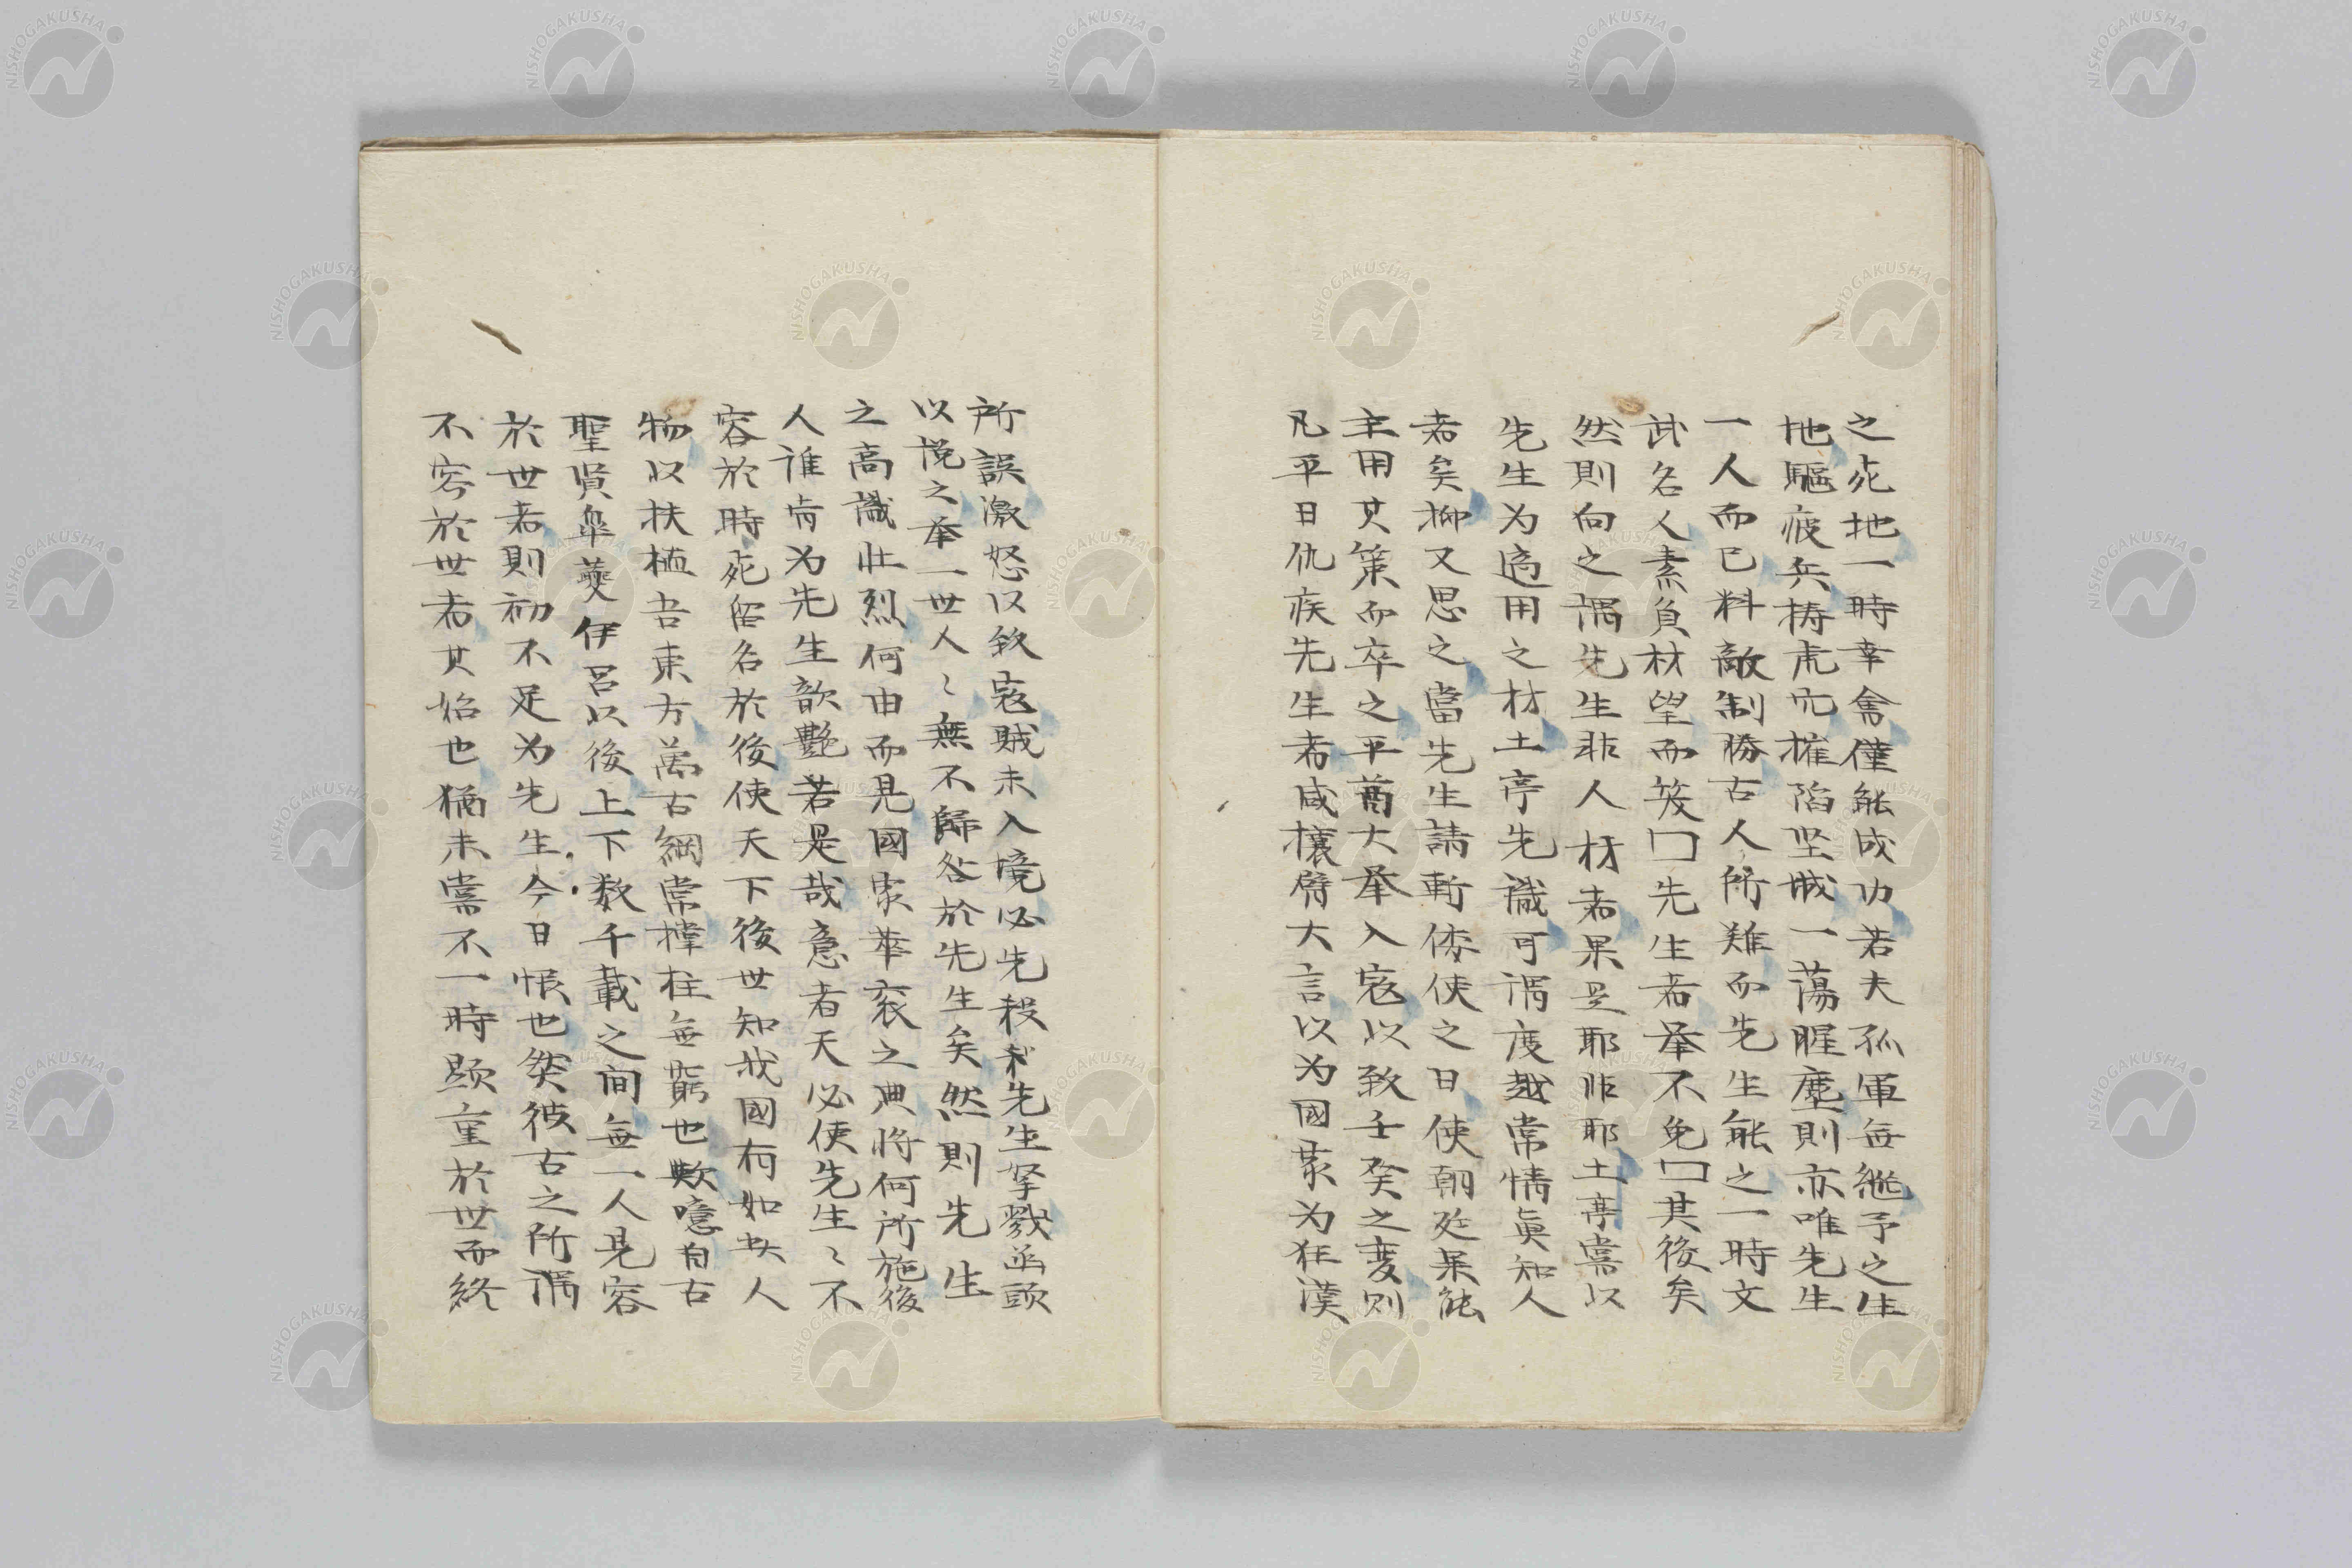 之死地一時幸會僅能成功若夫孤軍無継予之生
地驅疲兵擣虎穴摧陷坚城一蕩腥塵則亦唯先生
一人而已料敵制勝古人所難而先生能之一時文
武名人素負材望而笑□先生者举不免□其後矣
然則向之謂先生非人材者果是耶非耶土亭嘗以
先生为適用之材土亭先識可謂度越常情眞知人
者矣抑又思之當先生請斬倭使之日使朝廷果能
主用其策而卒之平酋大举入寇以致壬癸之变则
凡平日仇疾先生者咸攘臂大言以为國家为狂漢
所誤激怒以致寇賊未入境必先殺先生孥戮函頭
以悦之举一世人〻無不歸咎於先生矣然則先生
之高識壯烈何由而見國家華衮之典将何所施後
人谁肯为先生歆艶若是哉意者天必使先生〻不
容於時死留名於後使天下後世知我國有如此人
物以扶植吾東方萬古綱常撑柱無窮也歟噫自古
聖賢皐夔伊呂以後上下数千載之间無一人見容
於世者則初不足为先生今日恨也然彼古之所謂
不容於世者其始也猶未嘗不一時顕重於世而終
NISHOGAKUSHA